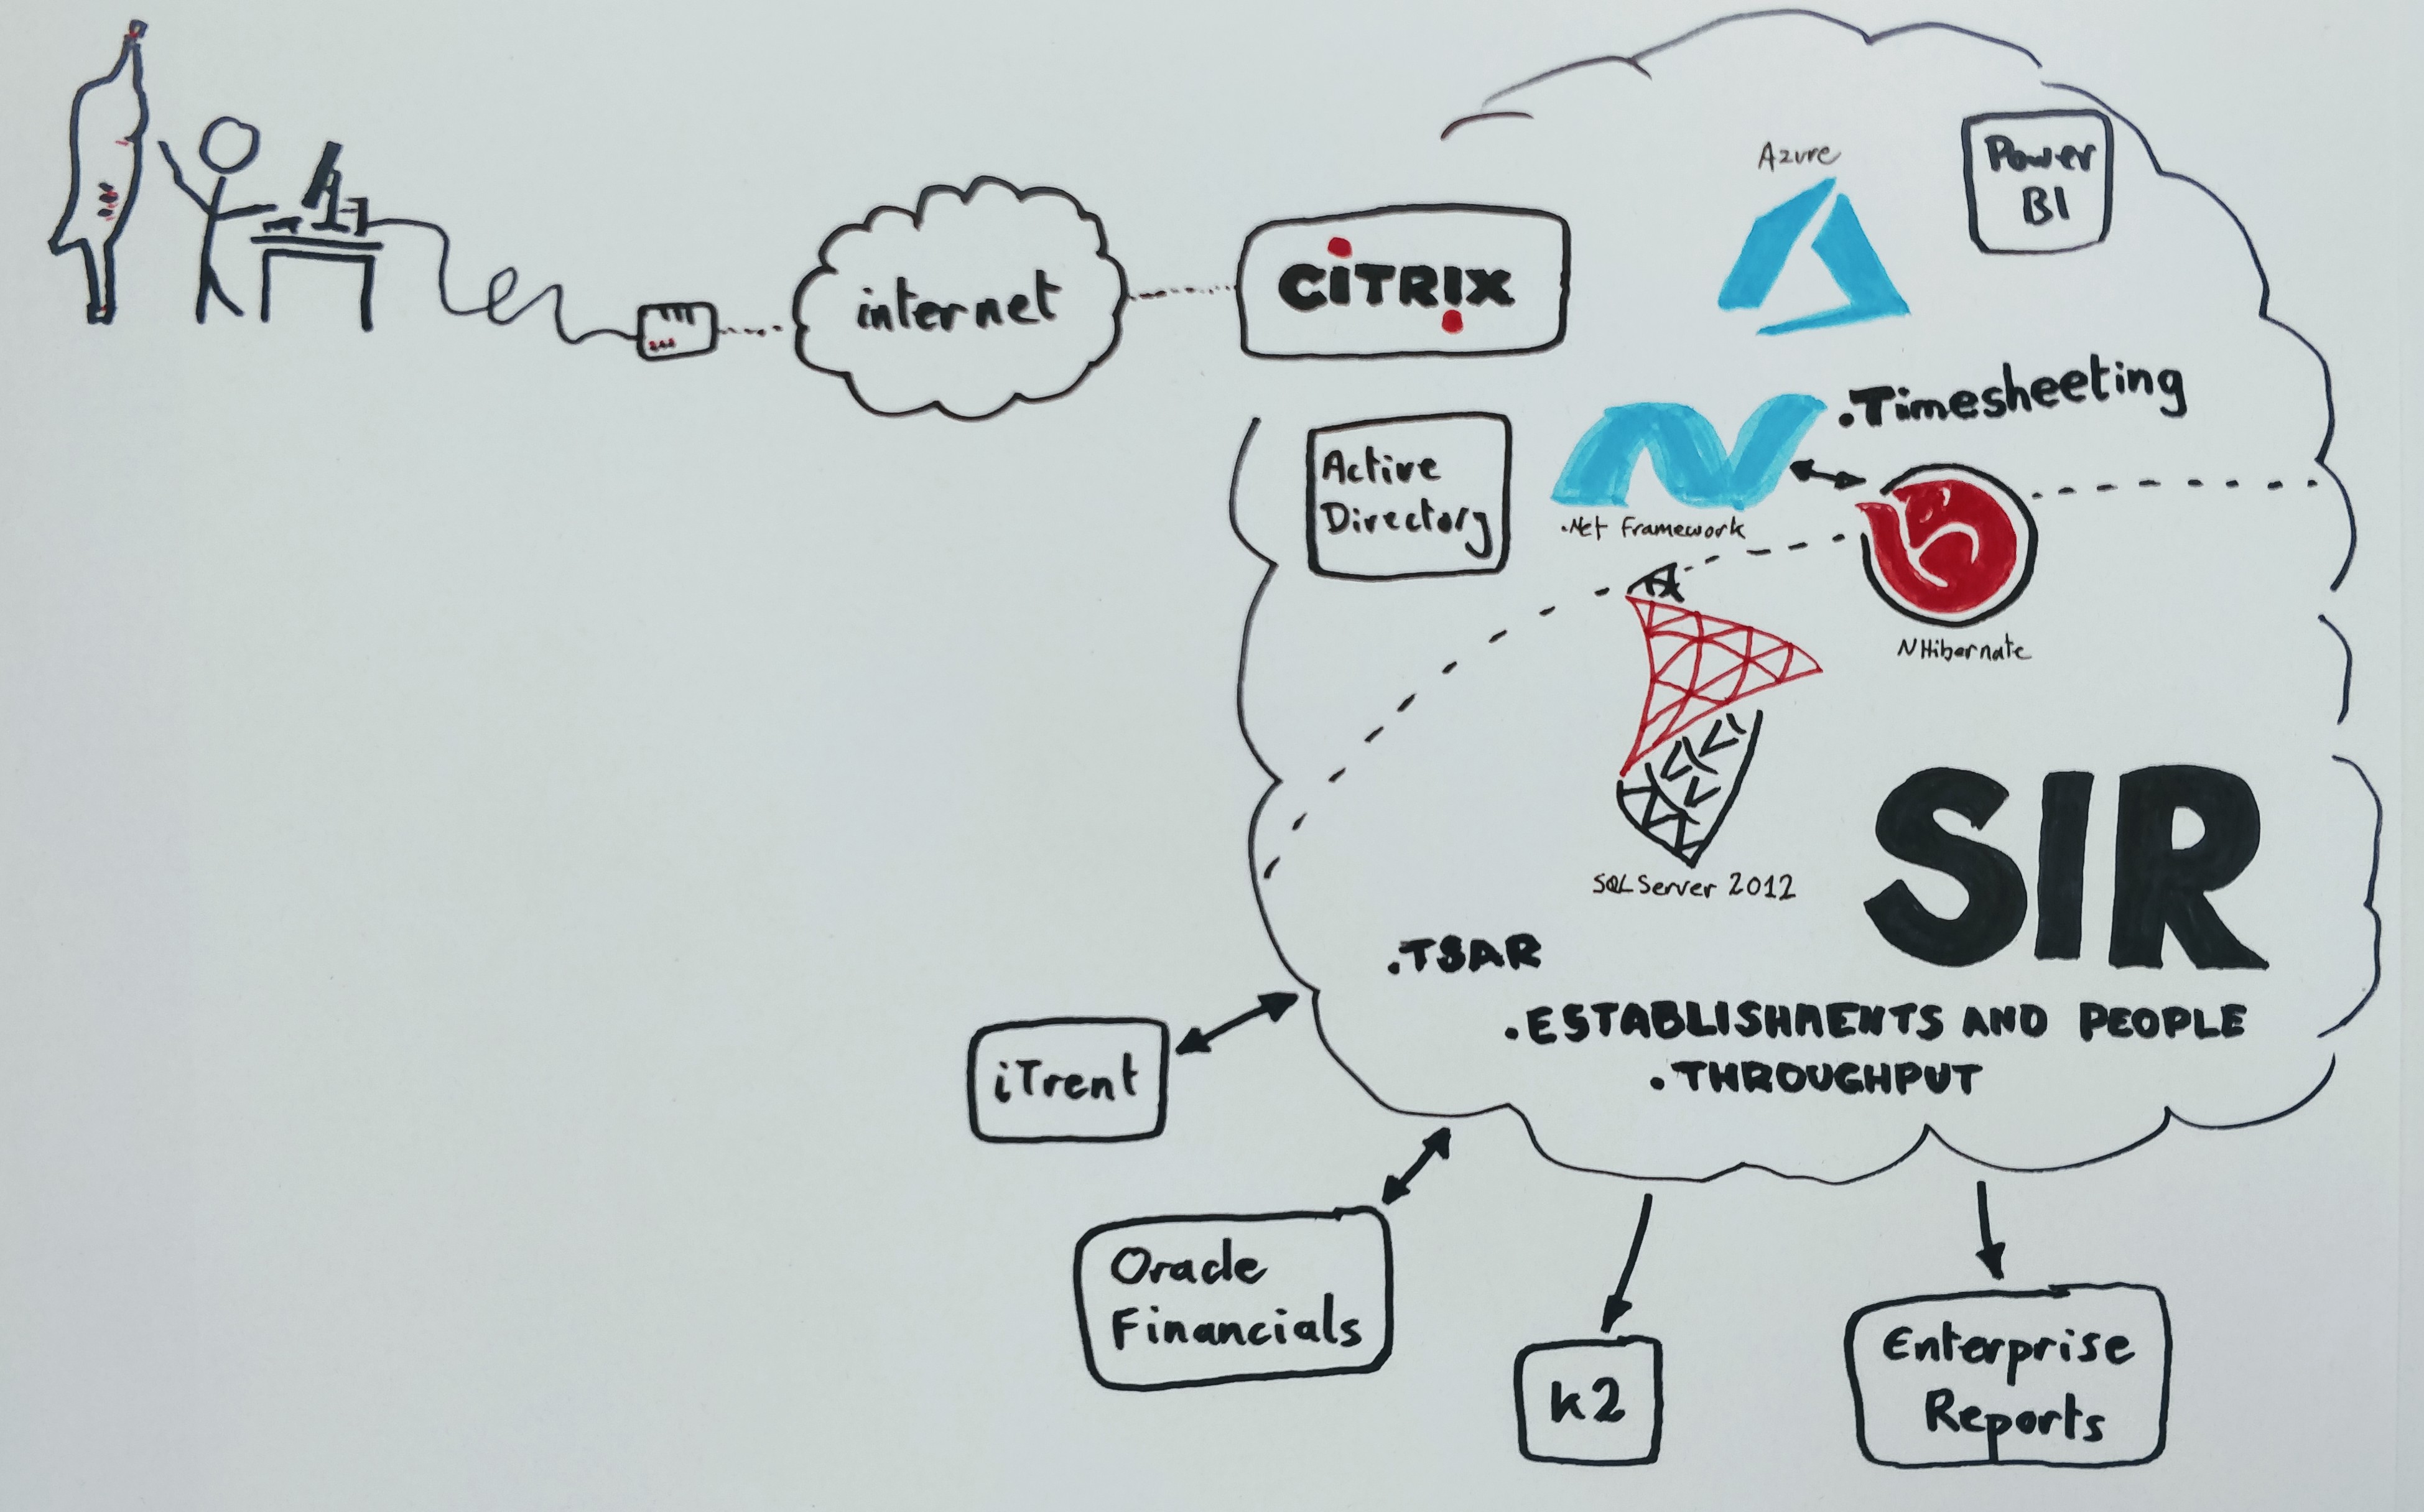 Azure
Power
BI
CiTRiX
internet
.Timesheeting
Active
Directory
.Net Framework
NHibernate
SQL Server 2012
SIR
.TSAR
.ESTABLISHMENTS AND PEOPLE
.THROUGHPUT
iTrent
Oracle
Financials
k2
Enterprise
Reports